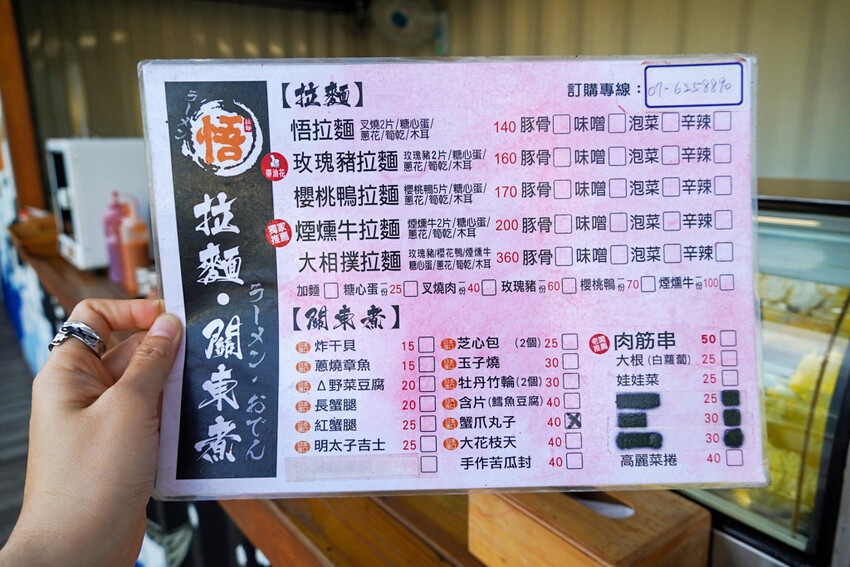 ラーメン
悟
拉麵
拉麵・關東煮
ラーメン・おでん
【拉麵】
訂購專線：07-6258890
悟拉麵 叉燒2片/糖心蛋/蔥花/筍乾/木耳 140 豚骨 味噌 泡菜 辛辣
帶油花 玫瑰豬拉麵 玫瑰豬2片/糖心蛋/蔥花/筍乾/木耳 160 豚骨 味噌 泡菜 辛辣
櫻桃鴨拉麵 櫻桃鴨5片/糖心蛋/蔥花/筍乾/木耳 170 豚骨 味噌 泡菜 辛辣
獨家推薦 煙燻牛拉麵 煙燻牛2片/糖心蛋/蔥花/筍乾/木耳 200 豚骨 味噌 泡菜 辛辣
大相撲拉麵 玫瑰豬/櫻花鴨/煙燻牛糖心蛋/蔥花/筍乾/木耳 360 豚骨 味噌 泡菜 辛辣
加麵 糖心蛋一份25 叉燒肉一份40 玫瑰豬一份60 櫻桃鴨一份70 煙燻牛一份100
【關東煮】
炸干貝 15
蔥燒章魚 15
△野菜豆腐 20
長蟹腿 20
紅蟹腿 25
明太子吉士 25
芝心包 (2個) 25
玉子燒 30
牡丹竹輪(2個) 30
含片(鱈魚豆腐) 40
蟹爪丸子 40
大花枝天 40
手作苦瓜封 40
老闆推薦 肉筋串 50
大根(白蘿蔔) 25
娃娃菜 25
25
30
30
高麗菜捲 40